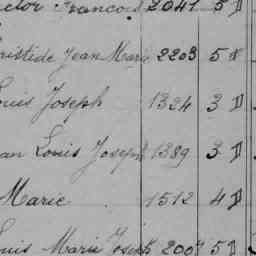 ctor François 2041 5 D
ristide Jean Marie 2203 5
ouis Joseph 1324 3 D
an Louis Joseph 1389 3 D
Marie 1512 4 D
ouis Marie Joseph 2007 5 D